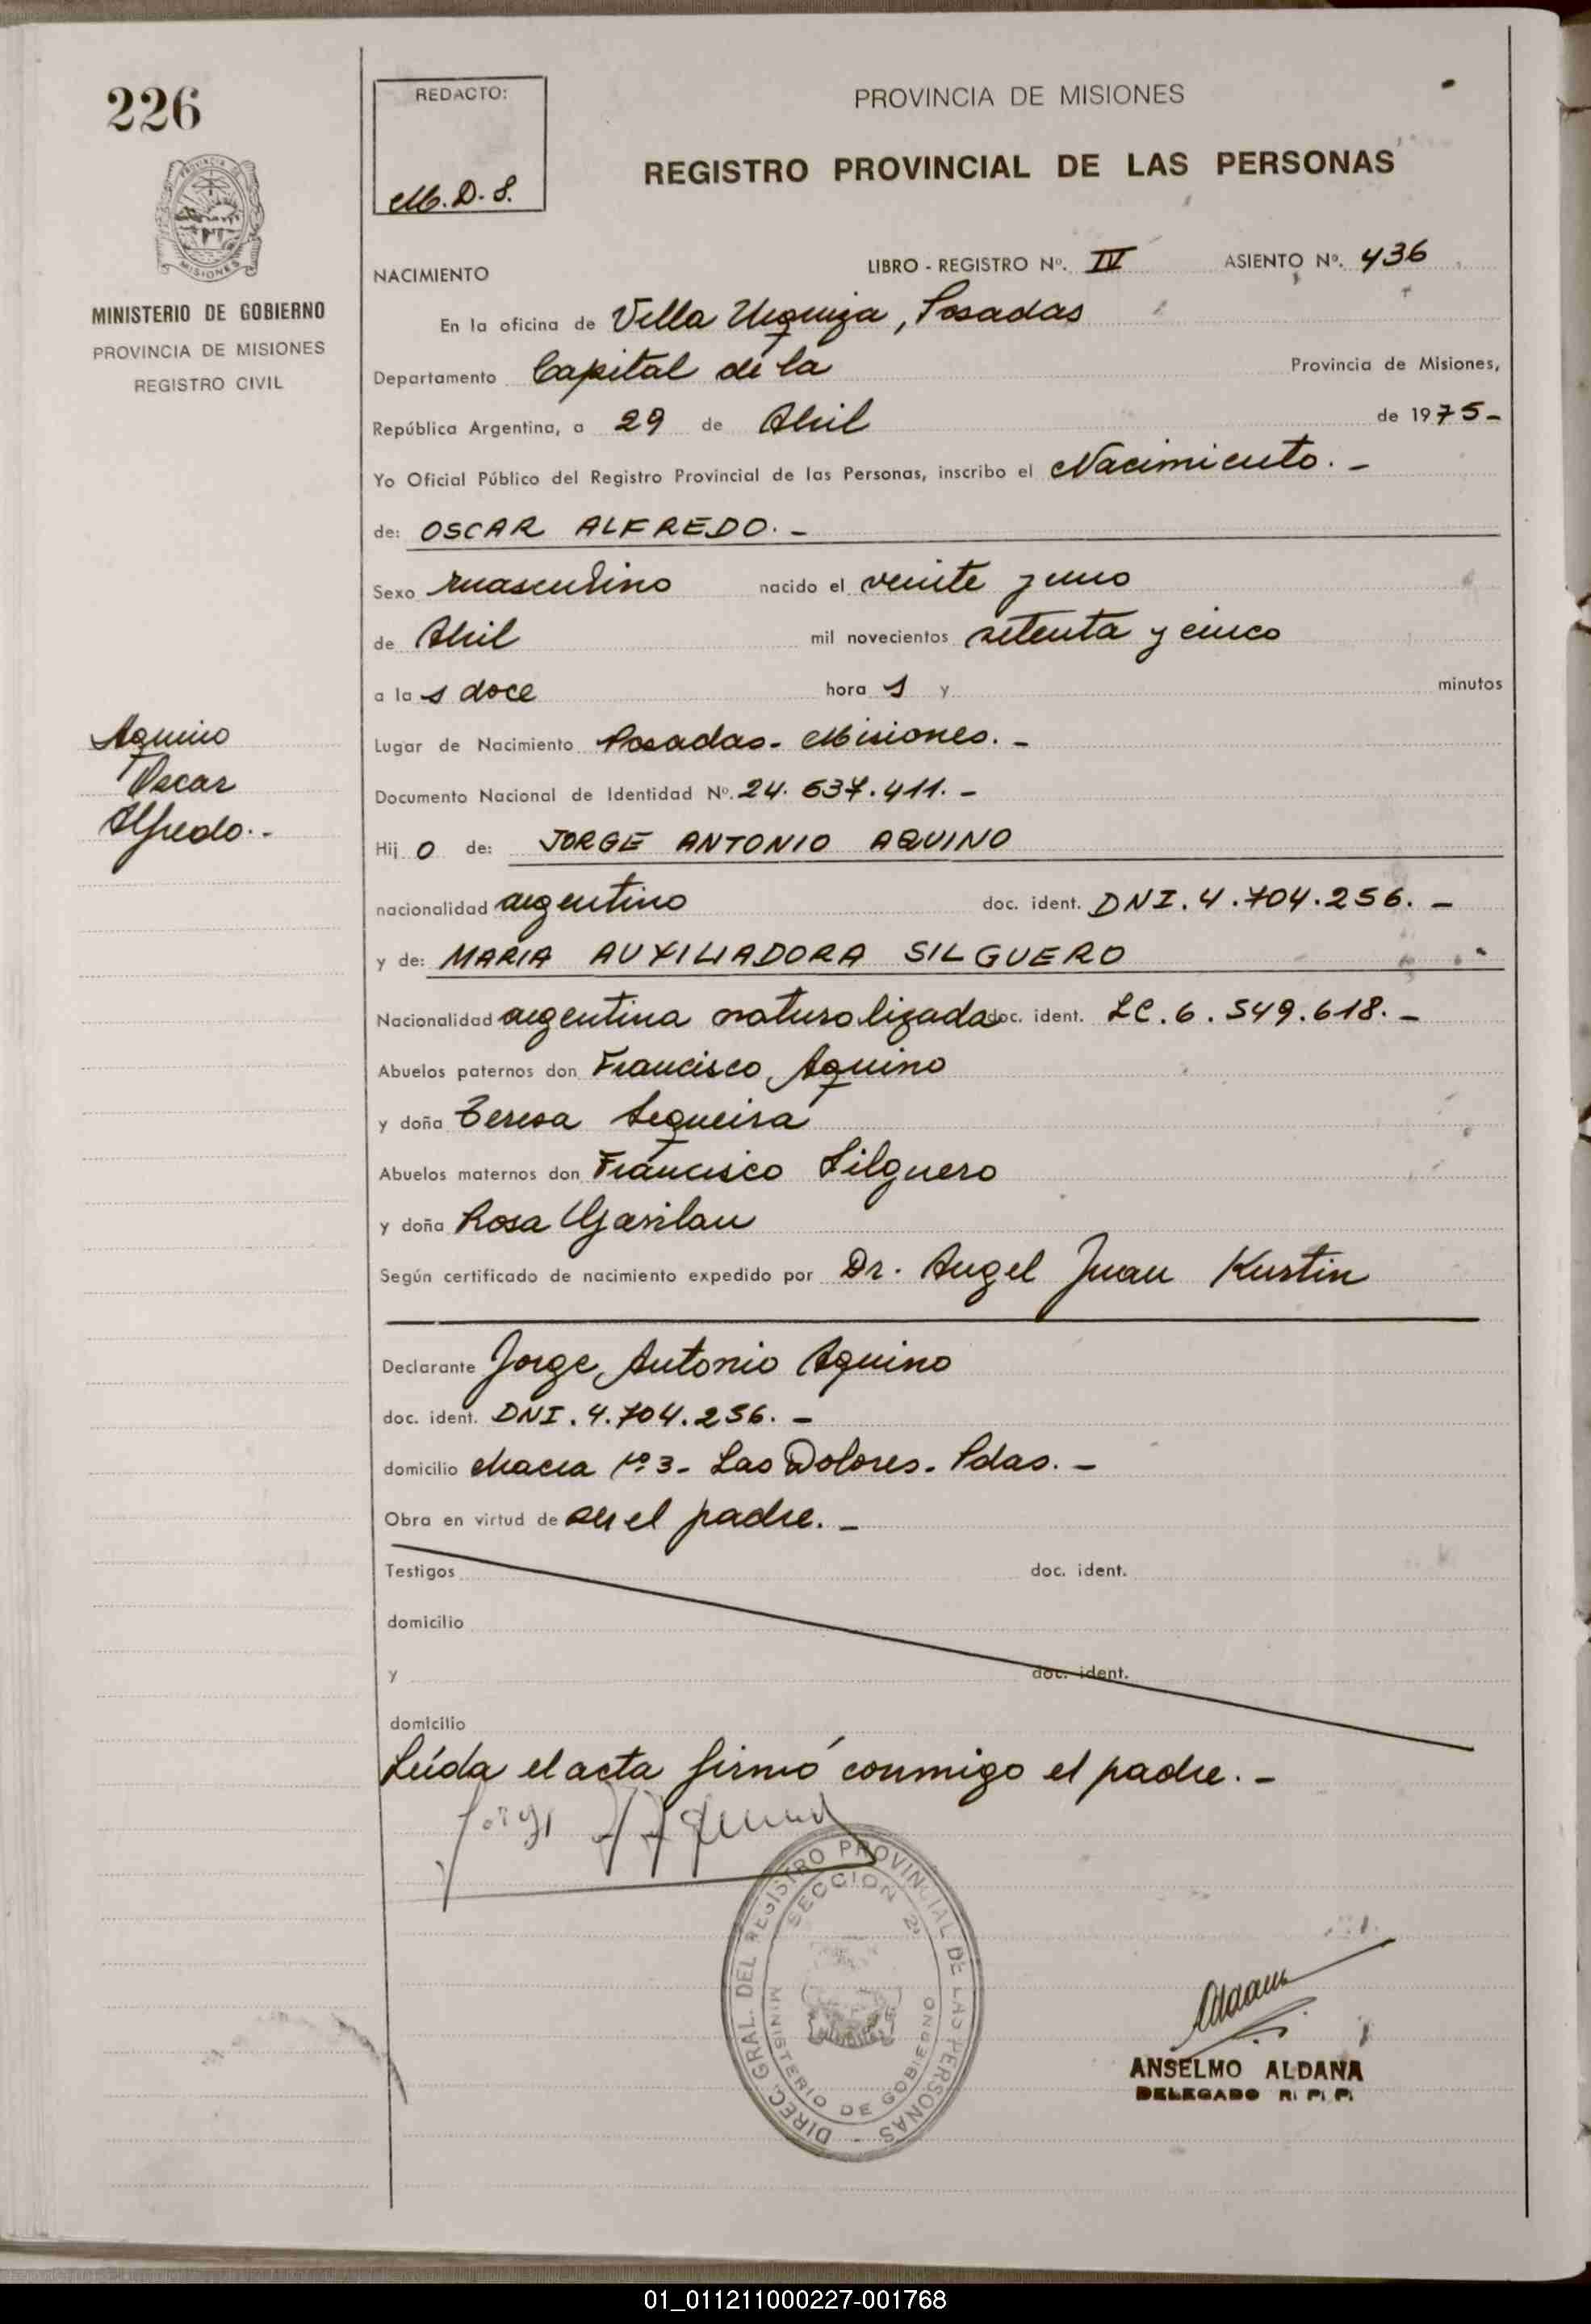 226
PROVINCIA DE
MISIONES
MINISTERIO DE GOBIERNO
PROVINCIA DE MISIONES
REGISTRO CIVIL
REDACTO:
M.D.S.
PROVINCIA DE MISIONES
REGISTRO PROVINCIAL DE LAS PERSONAS
NACIMIENTO LIBRO - REGISTRO Nº. IV ASIENTO Nº. 436
En la oficina de Villa Urquiza, Posadas
Departamento Capital de la Provincia de Misiones,
República Argentina, a 29 de Abril de 1975-
Yo Oficial Público del Registro Provincial de las Personas, inscribo el Nacimiento.-
de: OSCAR ALFREDO.-
Sexo masculino nacido el veinte y uno
de Abril mil novecientos setenta y cinco
a la s doce hora s y minutos
Lugar de Nacimiento Posadas- Misiones.-
Documento Nacional de Identidad Nº. 24.537.411.-
Hij o de: JORGE ANTONIO AQUINO
nacionalidad argentino doc. ident. DNI.4.704.256.-
y de: MARIA AUXILIADORA SILGUERO
Nacionalidad argentina naturalizada doc. ident. LC.6.549.618.-
Abuelos paternos don Francisco Aquino
y doña Teresa Sequeira
Abuelos maternos don Francisco Silguero
y doña Rosa
Según certificado de nacimiento expedido por Dr. Angel Juan Kustin
Declarante Jorge Antonio Aquino
doc. ident. DNI.4.704.256.-
domicilio chacra Nº 3- Las Dolores- Pdas.-
Obra en virtud de ser el padre.-
Testigos doc. ident.
domicilio
y doc. ident.
domicilio
Leída el acta firmó conmigo el padre.-
Aquino
Oscar
Alfredo.-
DIREC. GRAL. DEL REGISTRO PROVINCIAL DE LAS PERSONAS
SECCION 2ª
MINISTERIO DE GOBIERNO
ANSELMO ALDANA
DELEGADO R. P. P.
01_011211000227-001768